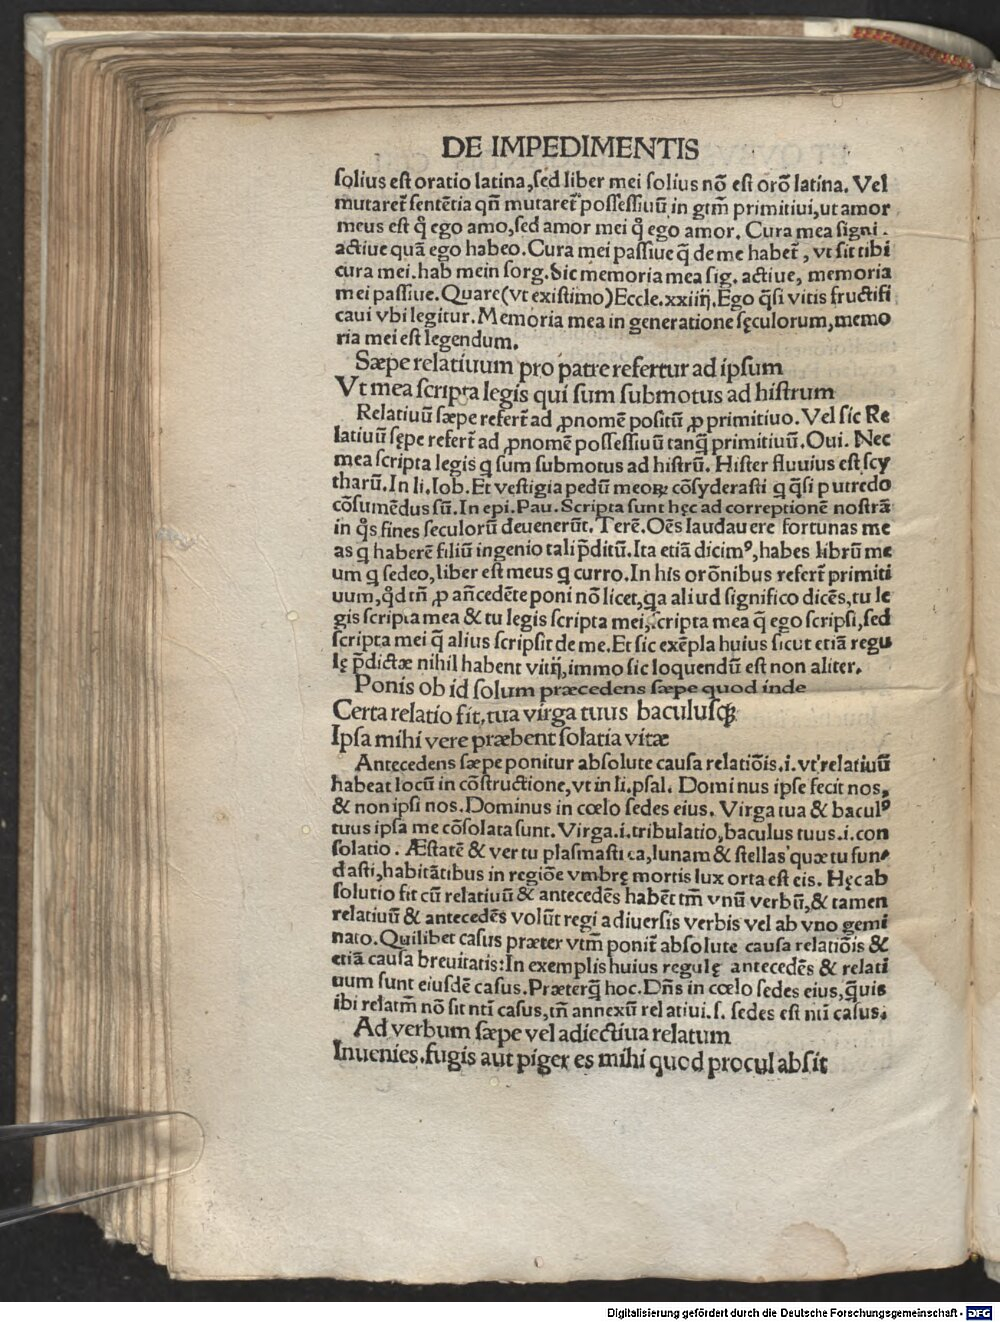 DE IMPEDIMENTIS
ſolius eſt oratio latina, ſed liber mei ſolius nō eſt orō latina. Vel
mutaret᷑ ſentētia qn̄ mutaret᷑ poſſeſſiuū in gtm̄ primitiui, ut amor
meus eſt ꝙ̊ ego amo, ſed amor mei ꝙ̊ ego amor. Cura mea ſigni.
actiue quā ego habeo. Cura mei paſſiue q̄ de me habet᷑, vt ſit tibi
cura mei. hab mein ſorg. Sic memoria mea ſig. actiue, memoria
mei paſſiue. Quare (vt exiſtimo) Eccle. xxiiij. Ego q̄ſi vitis fructifi
caui vbi legitur. Memoria mea in generatione ſęculorum, memo
ria mei eſt legendum.
Sæpe relatiuum pro patre refertur ad ipſum
Vt mea ſcripta legis qui ſum ſubmotus ad hiſtrum
Relatiuū ſæpe refert᷑ ad ꝓnomē poſitū ꝓ primitiuo. Vel ſic Re
latiuū ſępe refert᷑ ad ꝓnomē poſſeſſiuū tanq̄ primitiuū. Oui. Nec
mea ſcripta legis q ſum ſubmotus ad hiſtrū. Hiſter fluuius eſt ſcy
tharū. In li. Iob. Et veſtigia pedū meoꝝ cōſyderaſti q q̄ſi putredo
cōſumēdus ſū. In epi. Pau. Scripta ſunt hęc ad correptionē noſtrā
in q̊s fines ſeculorū deuenerūt. Terē. Oēs laudauere fortunas me
as q haberē filiū ingenio tali p̄ditū. Ita etiā dicimꝰ, habes librū me
um q ſedeo, liber eſt meus q curro. In his orōnibus refert᷑ primiti
uum, q̊d tn̄ ꝓ an̄cedēte poni nō licet, qa aliud ſignifico dicēs, tu le
gis ſcripta mea & tu legis ſcripta mei, ſcripta mea q̄ ego ſcripſi, ſed
ſcripta mei q̄ alius ſcripſit de me. Et ſic exēpla huius ſicut etiā regu
lę p̄dictæ nihil habent vitij, immo ſic loquendū eſt non aliter.
Ponis ob id ſolum præcedens ſæpe quod inde
Certa relatio fit, tua virga tuus baculuſq;
Ipſa mihi vere præbent ſolatia vitæ
Antecedens ſæpe ponitur abſolute cauſa relatiōis. i. vt relatiuū
habeat locū in cōſtructione, vt in li. pſal. Dominus ipſe fecit nos,
& non ipſi nos. Dominus in cœlo ſedes eius. Virga tua & baculꝰ
tuus ipſa me cōſolata ſunt. Virga. i. tribulatio, baculus tuus. i. con
ſolatio. Æſtatē & ver tu plaſmaſti ea, lunam & ſtellas quæ tu fun⸗
daſti, habitātibus in regiōe vmbrę mortis lux orta eſt eis. Hęc ab
ſolutio fit cū relatiuū & antecedēs habēt tm̄ vnū verbū, & tamen
relatiuū & antecedēs volūt regi a diuerſis verbis vel ab vno gemi
nato. Quilibet caſus præter vtm̄ ponit᷑ abſolute cauſa relatiōis &
etiā cauſa breuitatis: In exemplis huius regulę antecedēs & relati
uum ſunt eiuſdē caſus. Præterq̄ hoc. Dn̄s in cœlo ſedes eius, q̄uis
ibi relatm̄ nō ſit nti caſus, tm̄ annexū relatiui. ſ. ſedes eſt nti caſus.
Ad verbum ſæpe vel adiectiua relatum
Inuenies. fugis aut piger es mihi quod procul abſit
Digitalisierung gefördert durch die Deutsche Forschungsgemeinschaft - DFG